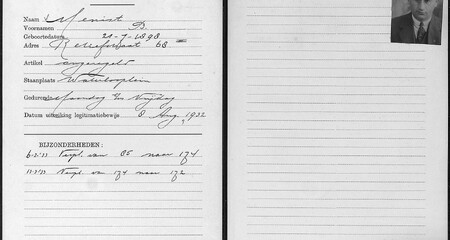 Naam Menist
Voornamen B.
Geboortedatum 21-7-1898
Adres Retiefstraat 68
Artikel ongeregeld
Staanplaats Waterlooplein
Gedurende Maandag t/m Vrijdag
Datum uitreiking legitimatiebewijs 8 Aug. 1932
BIJZONDERHEDEN:
6-2-'33 Verpl. van 85 naar 174
11-2-'33 Verpl. van 174 naar 172